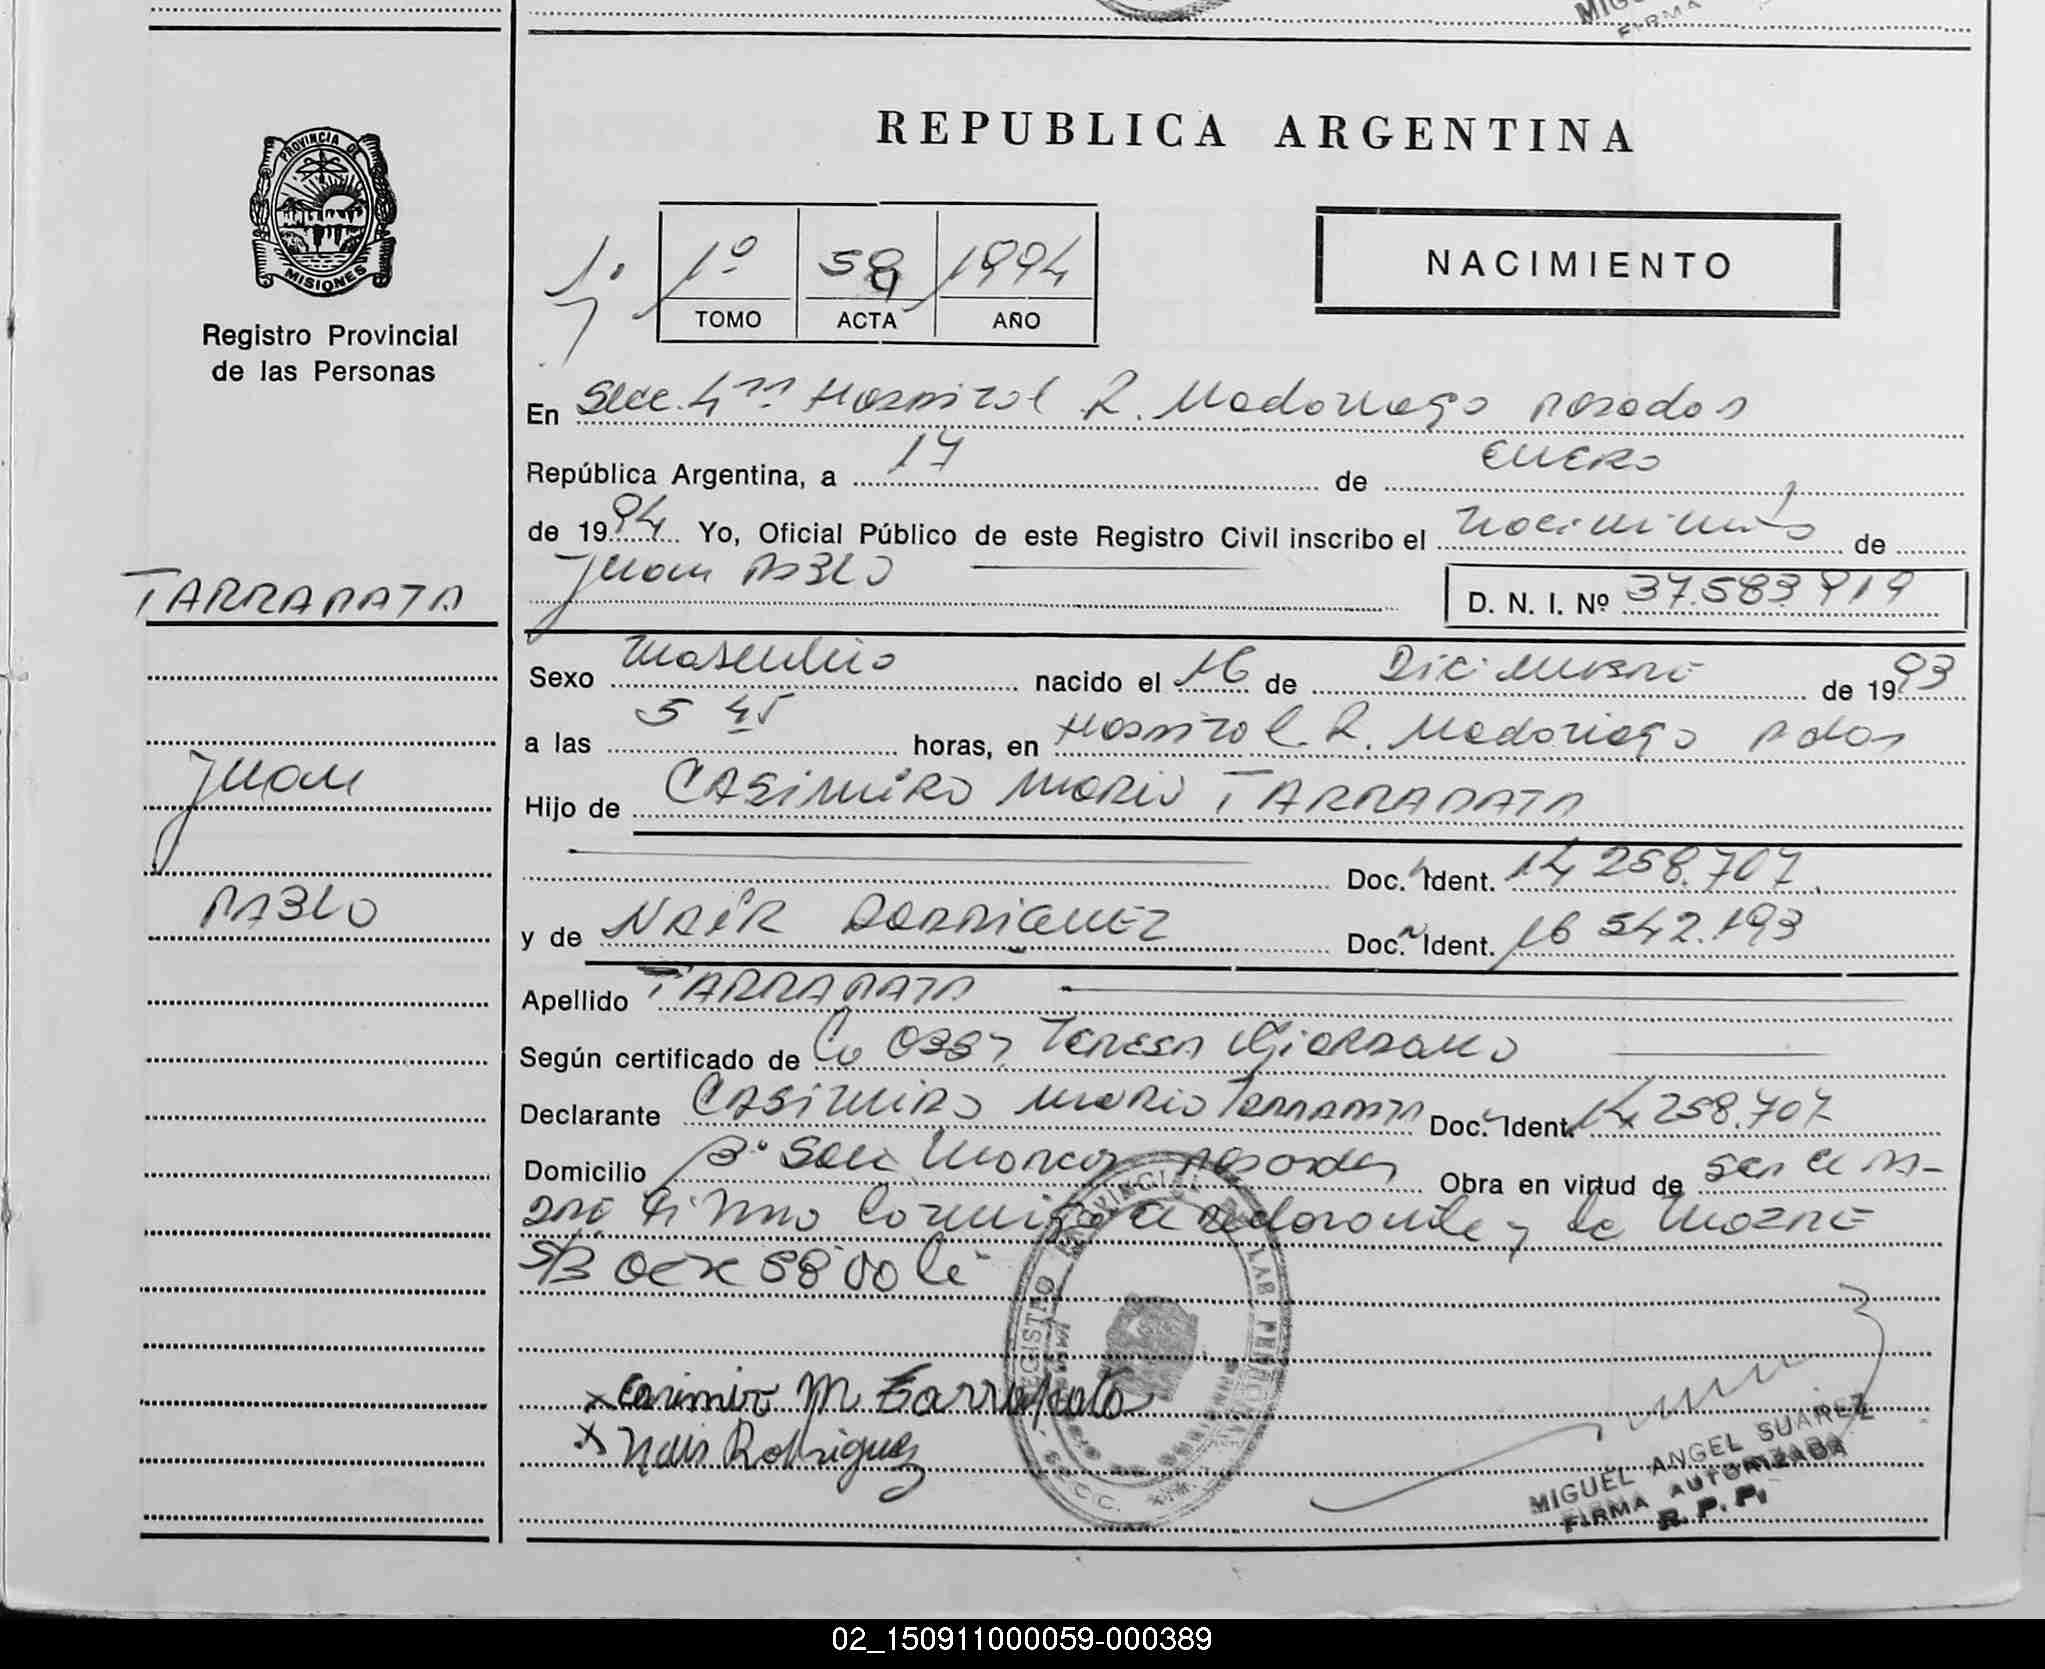 REPUBLICA ARGENTINA
PROVINCIA DE
MISIONES
Registro Provincial
de las Personas
1º 59 1994
TOMO ACTA AÑO
NACIMIENTO
En Secc. 4ta Hospital R. Madariaga Posadas
República Argentina, a 17 de Enero
de 1994 Yo, Oficial Público de este Registro Civil inscribo el Nacimiento de
Juan PABLO
D. N. I. Nº 37.583.919
TARRAPATA
Juan
PABLO
Sexo Masculino nacido el 16 de Diciembre de 1993
a las 5 45 horas, en Hospital R. Madariaga Pdas
Hijo de CASIMIRO MARIO TARRAPATA
Doc. Ident. 14 258.707
y de NAIR RODRIGUEZ Doc. Ident. 16 542.193
Apellido TARRAPATA
Según certificado de La Obst. TERESA Giordano
Declarante CASIMIRO MARIO TARRAPATA Doc. Ident. 14 258.707
Domicilio Bº San Marcos Posadas Obra en virtud de ser el
firma conmigo el declarante y la MADRE
Casimiro M Tarrapata
Nair Rodriguez
REGISTRO PROVINCIAL DE LAS PERSONAS
MIGUEL ANGEL SUAREZ
FIRMA AUTORIZADA
R. P. P.
02_150911000059-000389